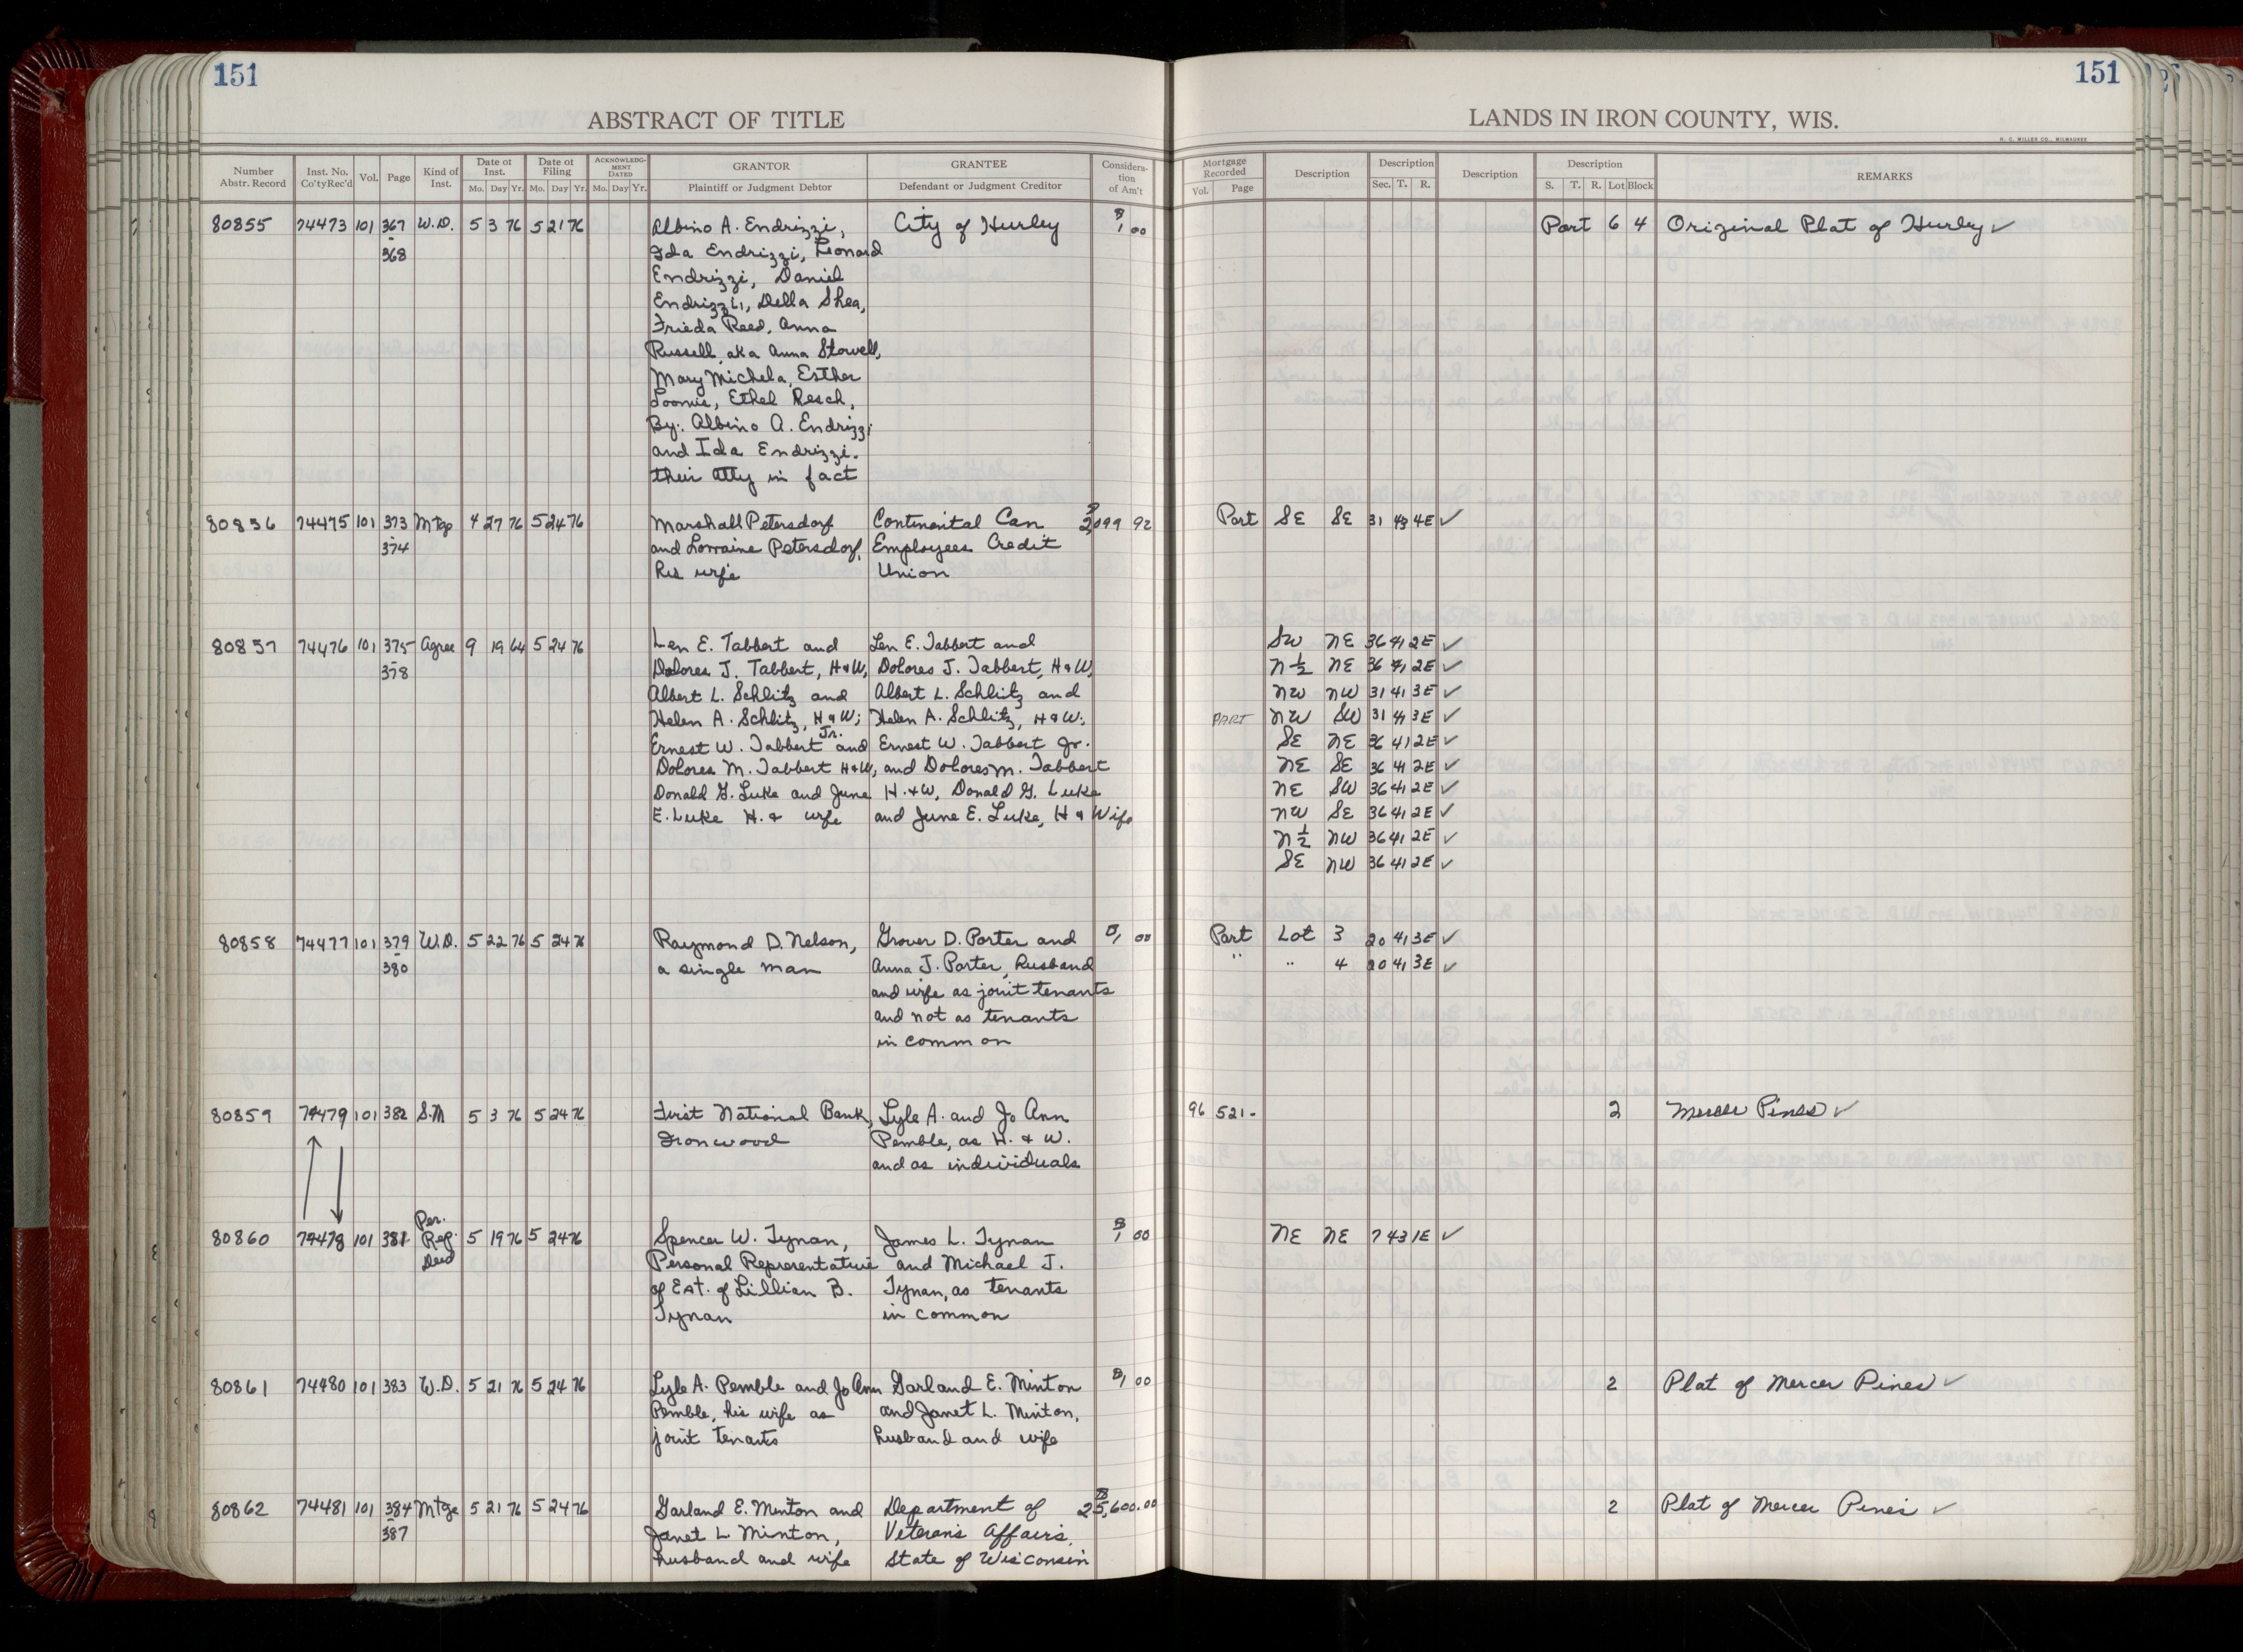 151
151
ABSTRACT OF TITLE
LANDS IN IRON COUNTY, WIS.
H. C. MILLER CO., MILWAUKEE
Number Abstr. Record Inst. No. Co'ty Rec'd Vol. Page Kind of Inst. Date of Inst. Mo. Day Yr. Date of Filing Mo. Day Yr. ACKNOWLEDGMENT DATED Mo. Day Yr. GRANTOR Plaintiff or Judgment Debtor GRANTEE Defendant or Judgment Creditor Consideration of Am't
Mortgage Recorded Vol. Page Description Description Sec. T. R. Description Description S. T. R. Lot Block REMARKS
80855 74473 101 367 W.D. 5 3 76 5 21 76 Albino A. Endrizzi, City of Hurley $1 00 Part 6 4 Original Plat of Hurley ✓
- 368 Ida Endrizzi, Leonard
Endrizzi, Daniel
Endrizzi, Della Shea,
Frieda Reed, Anna
Russell aka Anna Stowell,
Mary Michela, Esther
Loomis, Ethel Resch,
By: Albino A. Endrizzi
and Ida Endrizzi.
their Atty in fact
80856 74475 101 373 Mtge 4 27 76 5 24 76 Marshall Petersdorf Continental Can $2,099 92 Part SE SE 31 43 4E ✓
- 374 and Lorraine Petersdorf, Employees Credit
his wife Union
80857 74476 101 375 Agree 9 19 64 5 24 76 Len E. Tabbert and Len E. Tabbert and SW NE 36 41 2E ✓
- 378 Dolores J. Tabbert, H&W, Dolores J. Tabbert, H&W, N ½ NE 36 41 2E ✓
Albert L. Schlitz and Albert L. Schlitz and NW NW 31 41 3E ✓
Helen A. Schlitz, H&W; Helen A. Schlitz, H&W; PART NW SW 31 41 3E ✓
Ernest W. Tabbert Jr. and Ernest W. Tabbert Jr. SE NE 36 41 2E ✓
Dolores M. Tabbert H&W, and Dolores M. Tabbert NE SE 36 41 2E ✓
Donald G. Luke and June H.&W, Donald G. Luke NE SW 36 41 2E ✓
E. Luke H. & wife and June E. Luke, H & Wife NW SE 36 41 2E ✓
N ½ NW 36 41 2E ✓
SE NW 36 41 2E ✓
80858 74477 101 379 W.D. 5 22 76 5 24 76 Raymond D. Nelson, Grover D. Porter and $1 00 Part Lot 3 20 41 3E ✓
- 380 a single man Anna J. Porter, husband " " 4 20 41 3E ✓
and wife as joint tenants
and not as tenants
in common
80859 74479 101 382 S.M 5 3 76 5 24 76 First National Bank, Lyle A. and Jo Ann 96 521 - 2 Mercer Pines ✓
Ironwood Pemble, as H. & W.
and as individuals
80860 74478 101 381 Per. Rep. Deed 5 19 76 5 24 76 Spencer W. Tynan, James L. Tynan $1 00 NE NE 7 43 1E ✓
Personal Representative and Michael J.
of Est. of Lillian B. Tynan, as tenants
Tynan in common
80861 74480 101 383 W.D. 5 21 76 5 24 76 Lyle A. Pemble and Jo Ann Garland E. Minton $1 00 2 Plat of Mercer Pines ✓
Pemble, his wife as and Janet L. Minton,
joint tenants husband and wife
80862 74481 101 384 Mtge 5 21 76 5 24 76 Garland E. Minton and Department of $25,600.00 2 Plat of Mercer Pines ✓
- 387 Janet L Minton, Veterans Affairs,
husband and wife State of Wisconsin